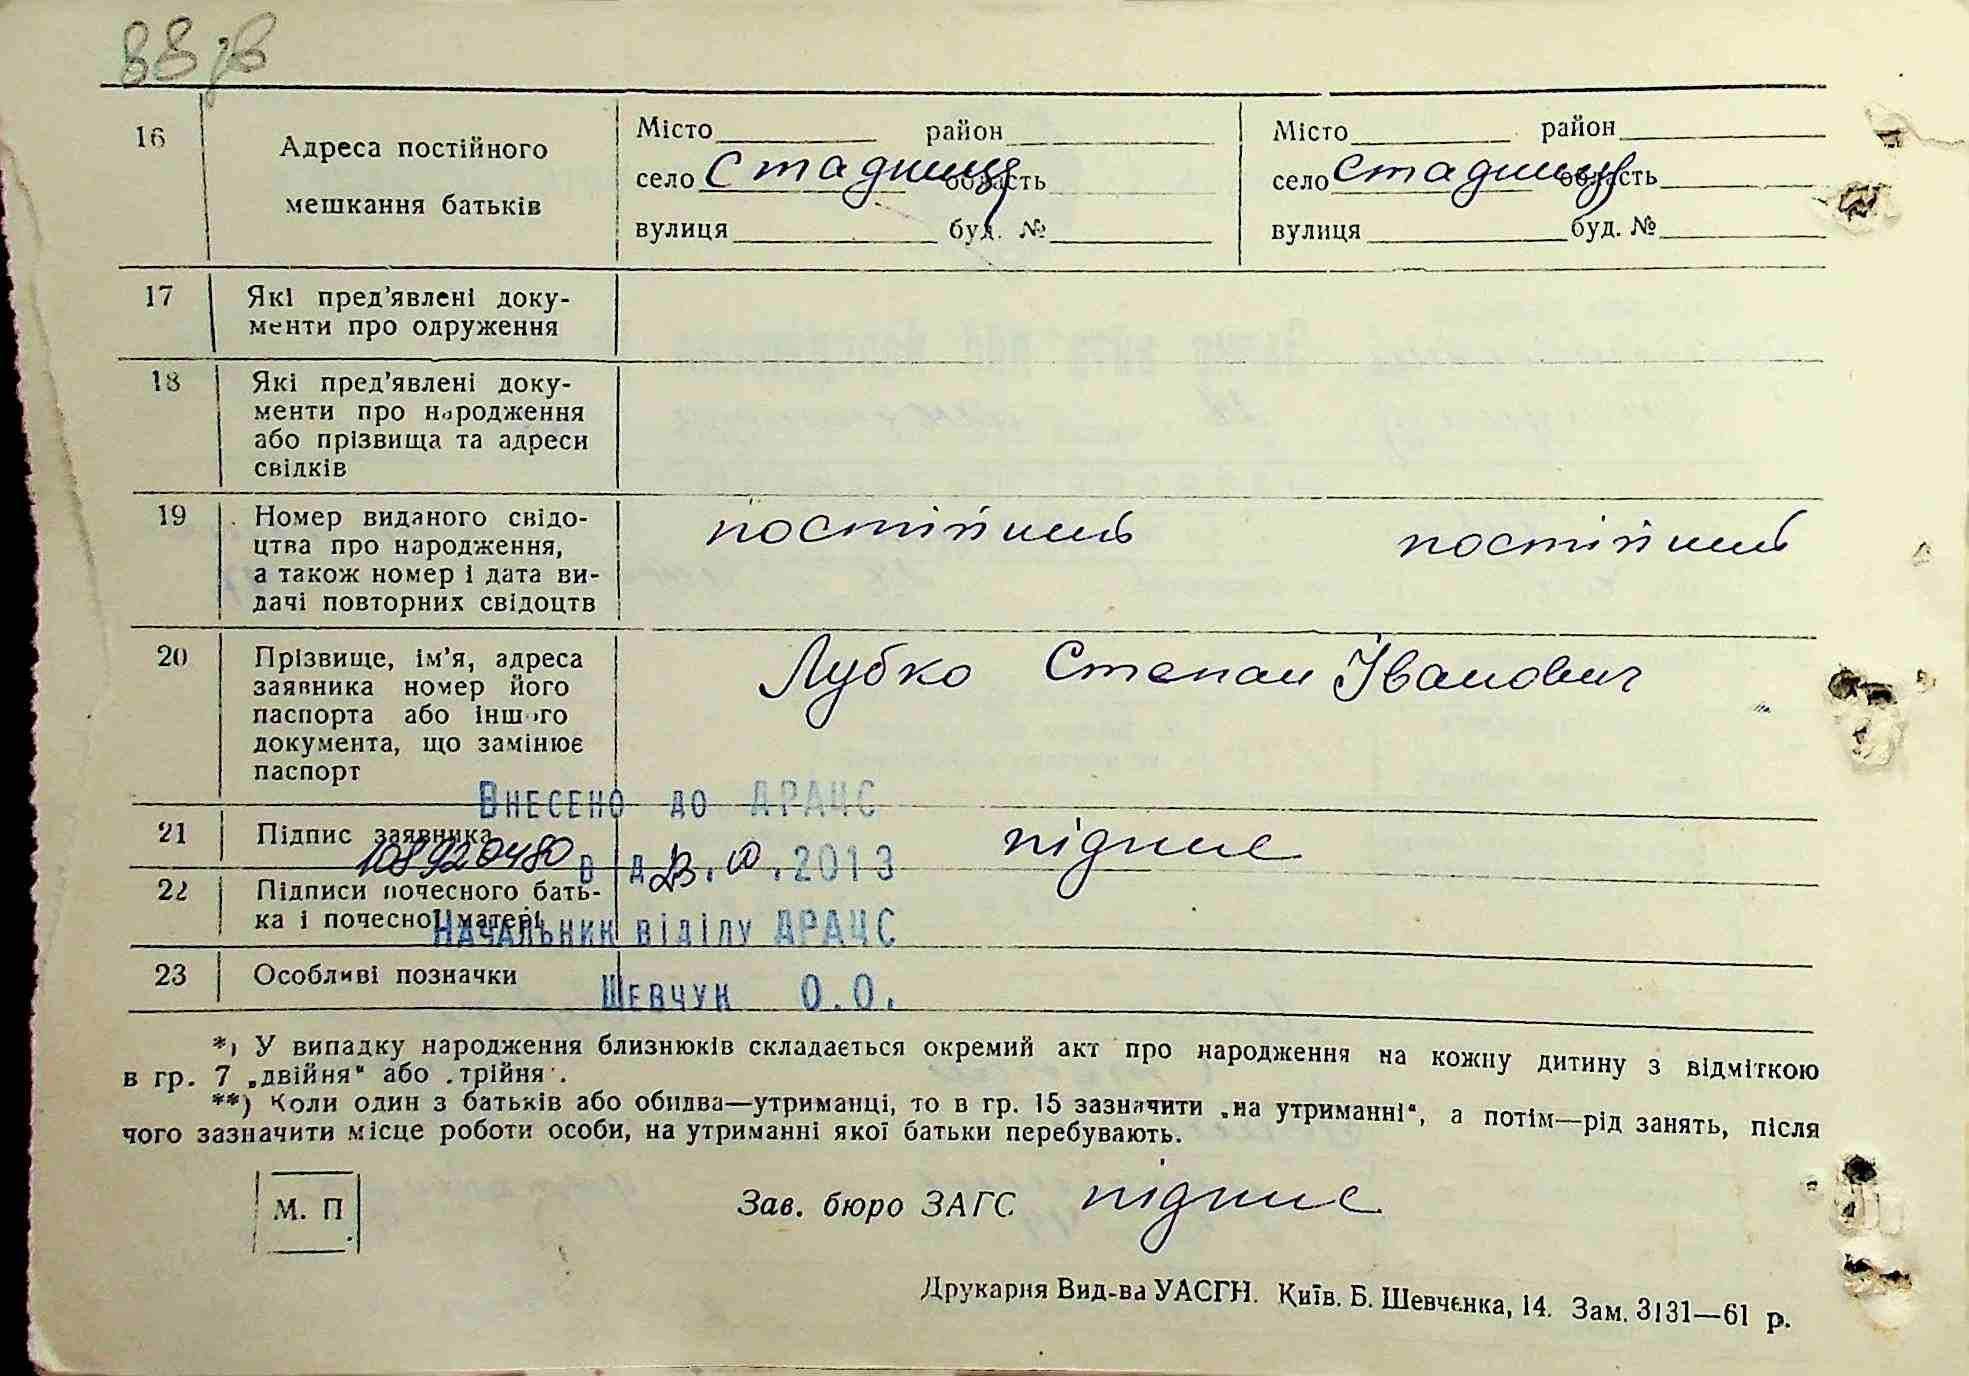 88 зв
16 Адреса постійного мешкання батьків
Місто район
село Стадниця область
вулиця буд. №
Місто район
село Стадниця область
вулиця буд. №
17 Які пред'явлені доку-
менти про одруження
18 Які пред'явлені доку-
менти про народження
або прізвища та адреси
свідків
19 Номер виданого свідо-
цтва про народження,
а також номер і дата ви-
дачі повторних свідоцтв
постійний постійний
20 Прізвище, ім'я, адреса
заявника номер його
паспорта або іншого
документа, що замінює
паспорт
Лубко Степан Іванович
Внесено до ДРАЦС
21 Підпис заявника підпис
22 Підписи почесного бать-
ка і почесної матері
2013
Начальник відділу ДРАЦС
23 Особливі позначки
Шевчук О.О.
*) У випадку народження близнюків складається окремий акт про народження на кожну дитину з відміткою
в гр. 7 „двійня“ або „трійня“.
**) Коли один з батьків або обидва—утриманці, то в гр. 15 зазначити „на утриманні“, а потім—рід занять, після
чого зазначити місце роботи особи, на утриманні якої батьки перебувають.
М. П
Зав. бюро ЗАГС підпис
Друкарня Вид-ва УАСГН. Київ. Б. Шевченка, 14. Зам. 3131—61 р.